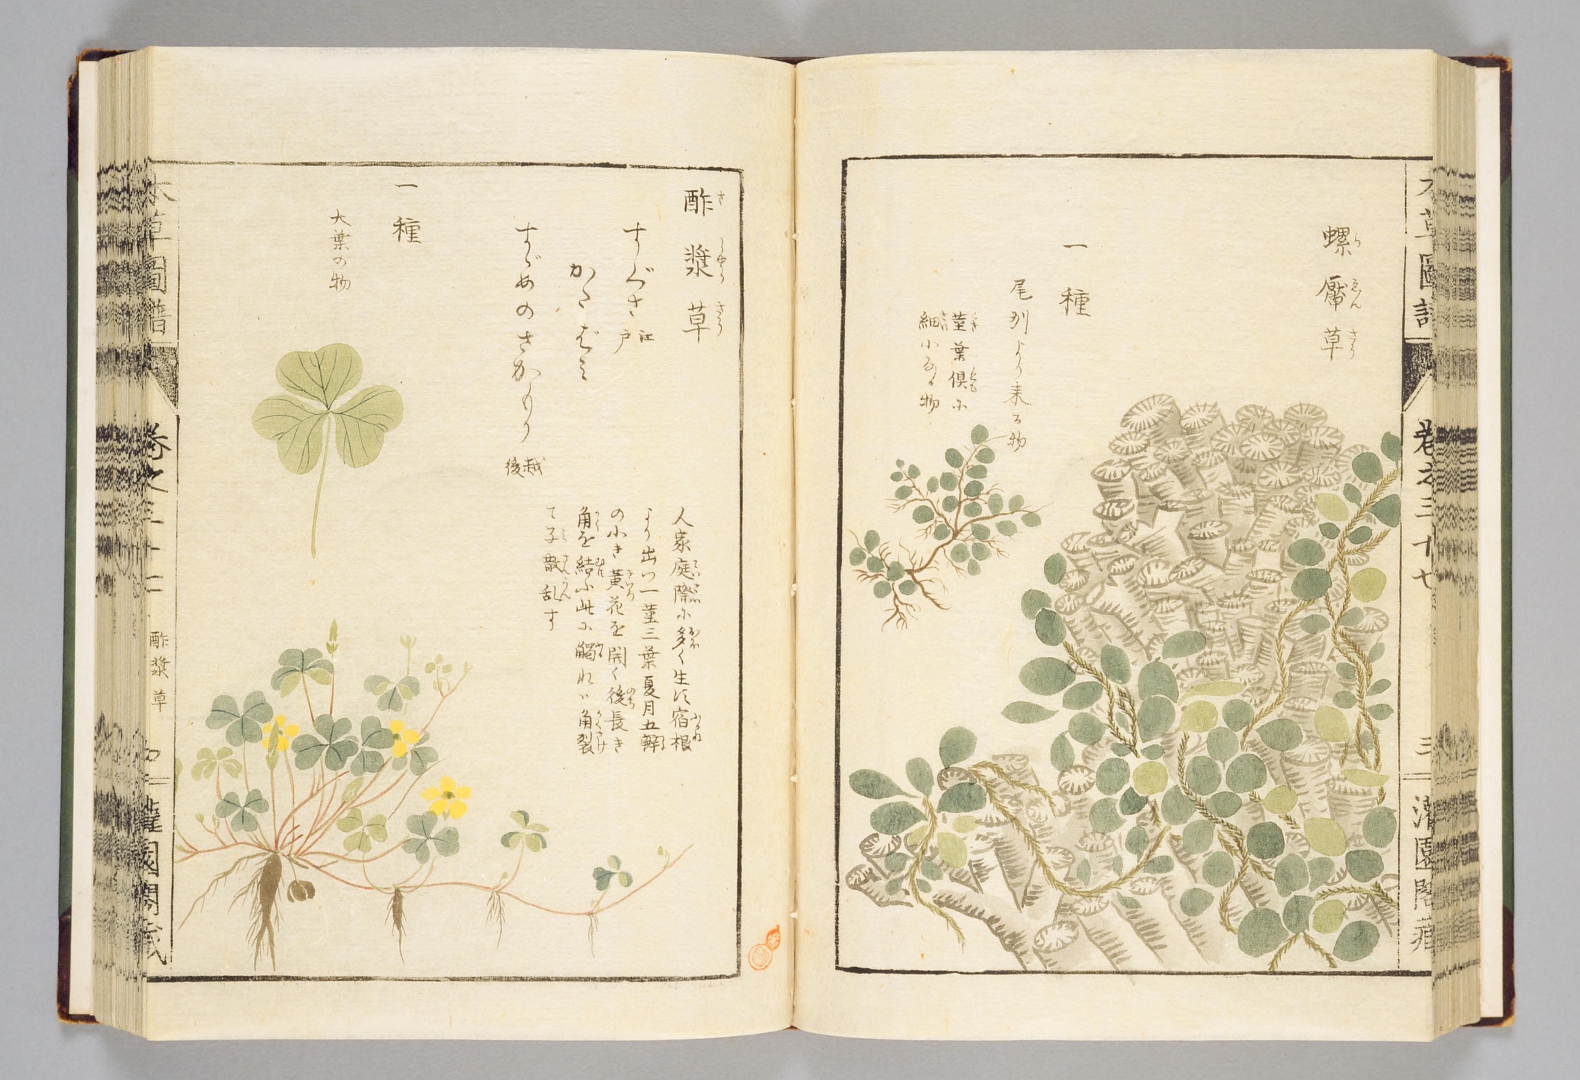 本草圖譜
巻之三十七
三
灌園閣藏
螺厴草
らゑんさう
一種
尾州より来る物
茎葉倶に
細小なる物
酢漿草
さくしやうさう
すぐさ 江戸
かたばミ
すゞめのさかもり 越後
人家庭際に多く生ず宿根
より出つ一茎三葉夏月五瓣
の小き黄花を開く後長き
角を結ふ此に觸れハ角裂
て子散乱す
一種
大葉の物
本草圖譜
巻之三十七
酢漿草
四
灌園閣藏